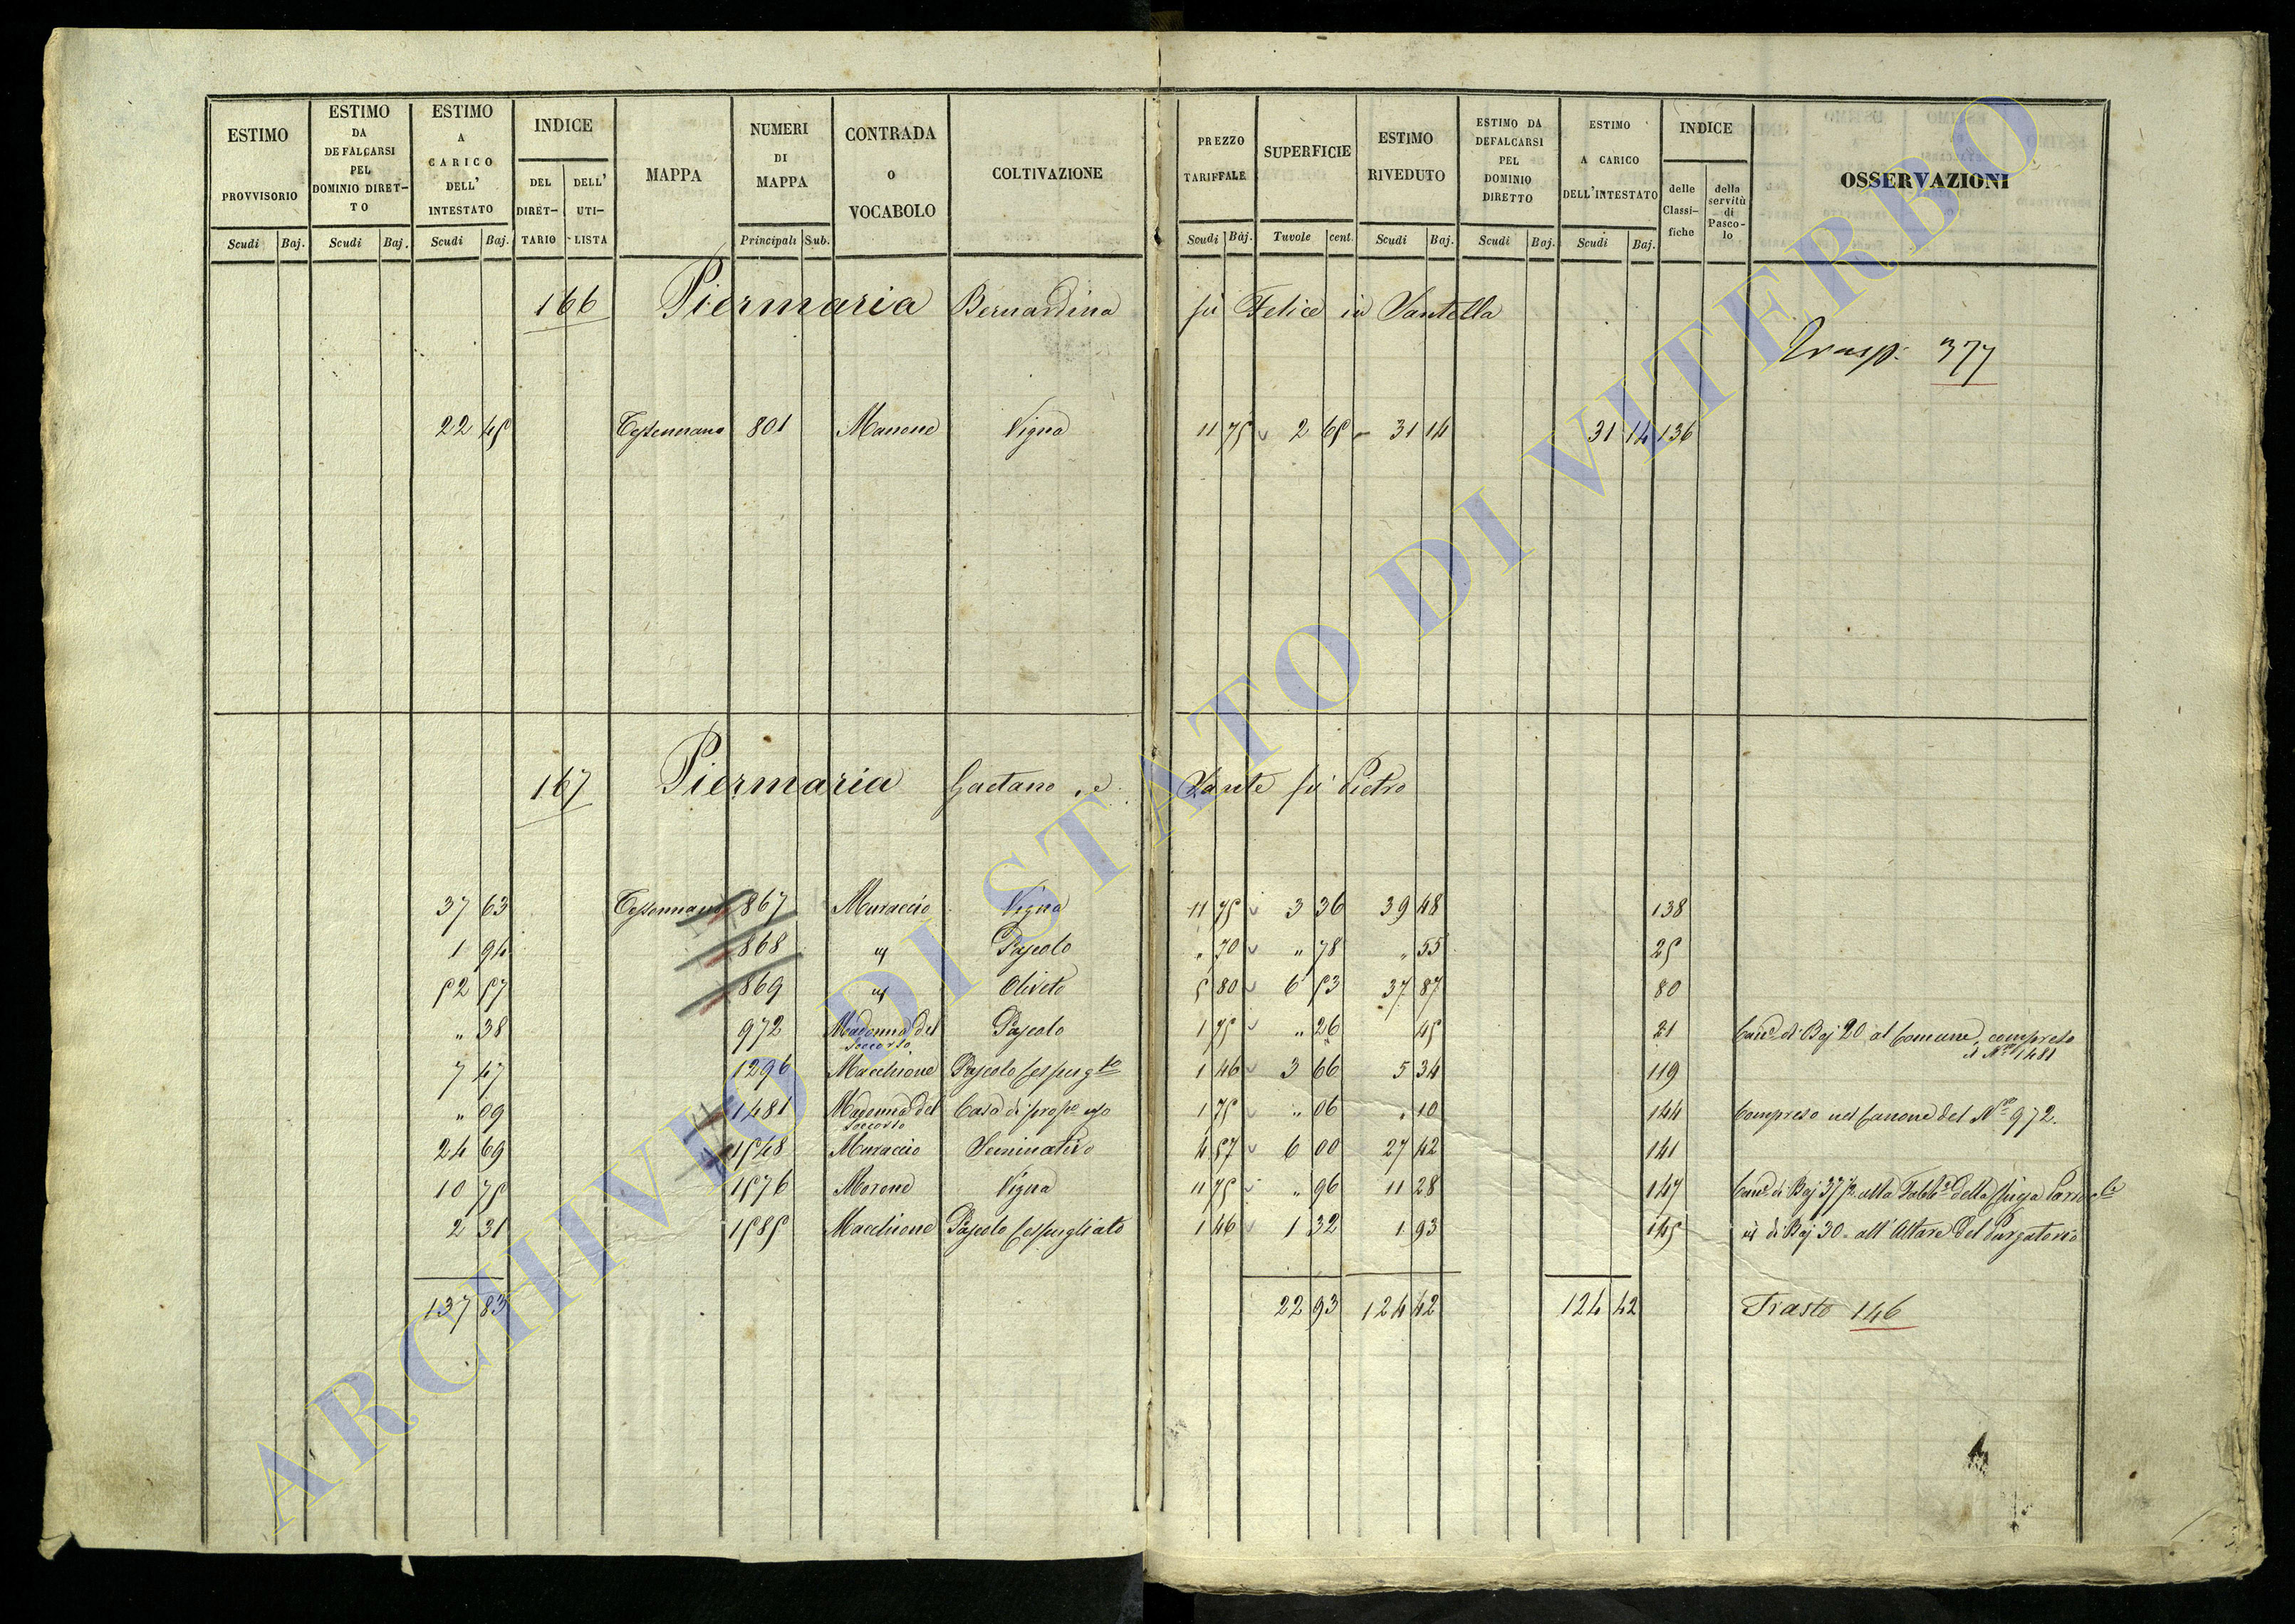 ESTIMO PROVVISORIO Scudi Baj.
ESTIMO DA DEFALCARSI PEL DOMINIO DIRET-TO Scudi Baj.
ESTIMO A CARICO DELL' INTESTATO Scudi Baj.
INDICE DEL DIRET-TARIO DELL' UTI-LISTA
MAPPA
NUMERI DI MAPPA Principali Sub.
CONTRADA O VOCABOLO
COLTIVAZIONE
PREZZO TARIFFALE Scudi Baj.
SUPERFICIE Tavole cent.
ESTIMO RIVEDUTO Scudi Baj.
ESTIMO DA DEFALCARSI PEL DOMINIO DIRETTO Scudi Baj.
ESTIMO A CARICO DELL'INTESTATO Scudi Baj.
INDICE delle Classi-fiche della servitù di Pasco-lo
OSSERVAZIONI
166 Piermaria Bernardina fù Felice in Santella
Trasp. 377
22 45 Tessennano 801 Manone Vigna 11 75 2 65 31 14 31 14 136
167 Piermaria Gaetano, e Sante fù Pietro
37 63 Tessennano 867 Muraccio Vigna 11 75 3 36 39 48 138
1 94 868 " Pascolo " 70 " 78 " 55 25
52 57 869 " Oliveto 5 80 6 53 37 87 80
" 38 972 Madonna del Soccorso Pascolo 1 75 " 26 45 21 Can.e di Baj 20 al Comune, compreso il N.ro 1481
7 47 1296 Macchione Pascolo Cespug.to 1 46 3 66 5 34 119
" 09 1481 Madonna del Soccorso Casa di prop.o uso 1 75 " 06 " 10 144 Compreso nel Canone del N.ro 972.
24 69 1548 Muraccio Seminativo 4 57 6 00 27 42 141
10 75 1576 Morone Vigna 11 75 " 96 11 28 147 Can.e di Baj 37 1/2 alla Fabb.a della Chiesa Parroc.le
2 31 1585 Macchione Pascolo Cespugliato 1 46 1 32 1 93 145 id. di Baj 30 all'Altare del Purgatorio
137 83 22 93 124 42 124 42 Trasto 146
ARCHIVIO DI STATO DI VITERBO